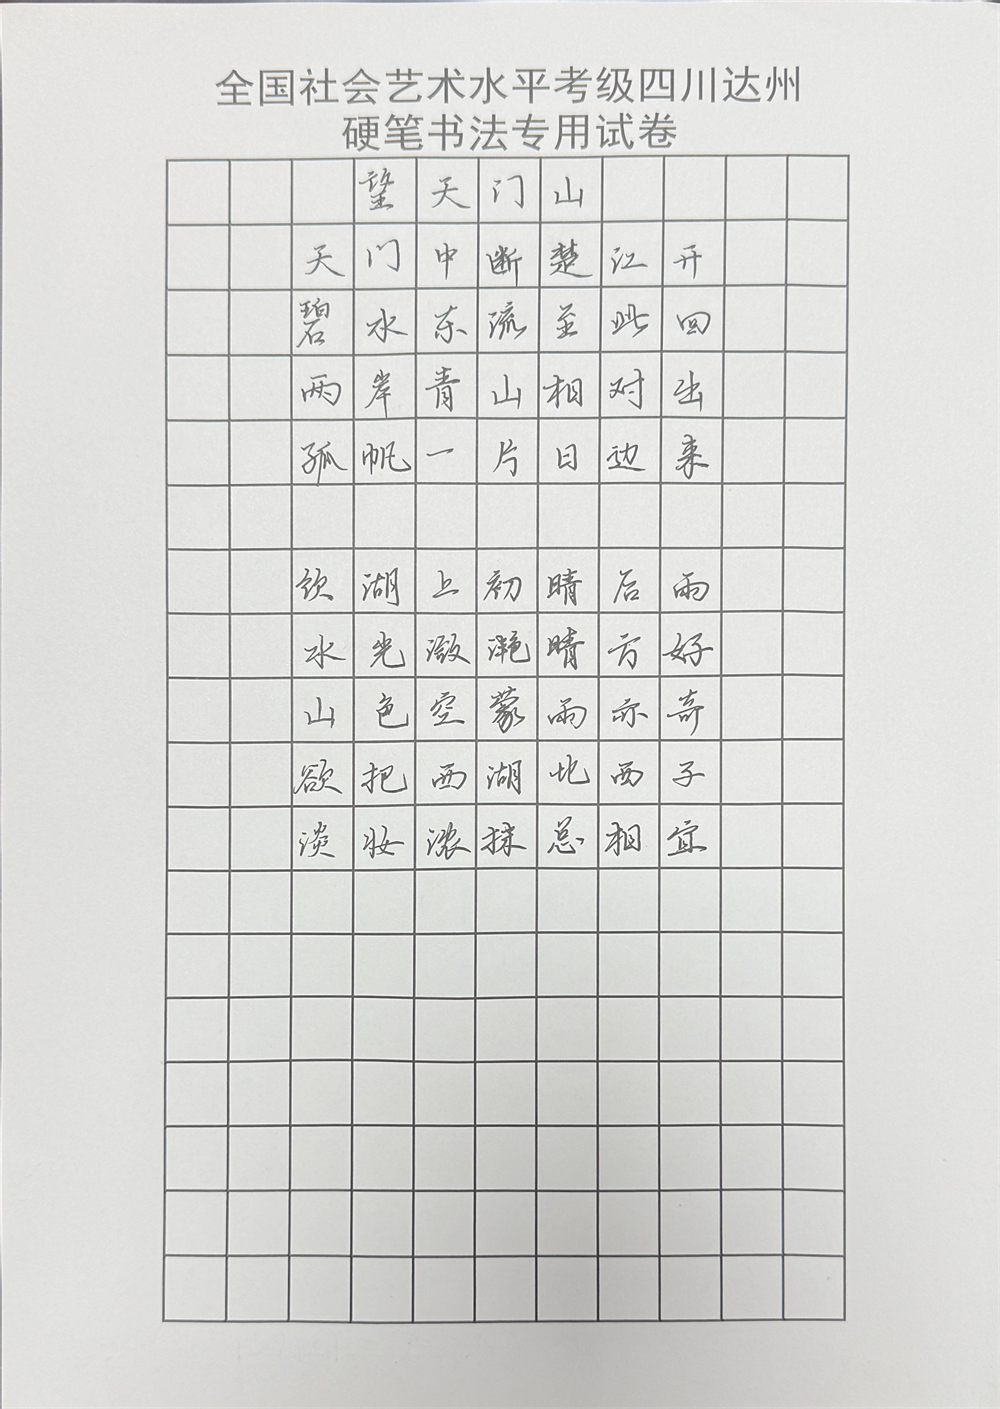 全国社会艺术水平考级四川达州
硬笔书法专用试卷
望天门山
天门中断楚江开
碧水东流至此回
两岸青山相对出
孤帆一片日边来
饮湖上初晴后雨
水光潋滟晴方好
山色空蒙雨亦奇
欲把西湖比西子
淡妆浓抹总相宜